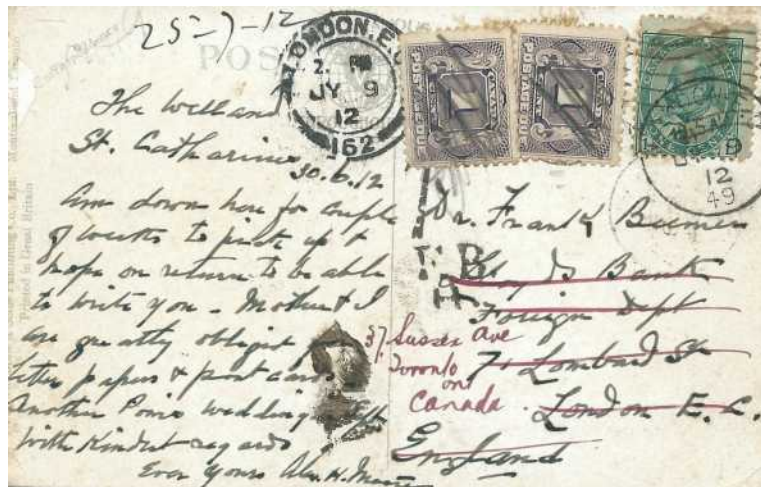 25-7-12
POS
LONDON. E.C
2. PM
JY 9
12
162
CANADA
1
CENT
POSTAGE DUE
CANADA
1
CENT
POSTAGE DUE
12
49
The Welland
St. Catharines
30.6.12
Am down here for couple
of weeks to pick up &
hope on return to be able
to write you - Mother & I
are greatly obliged for
letter papers & post card.
Another Poin wedding
With Kindest regards
Ever yours Alex. H.
Dr. Frank Beemer
Bank
Foreign Dept
71 Lombard St
London E. C.
England
37 Sussex Ave
Toronto
ont
Canada.
Printed in Great Britain